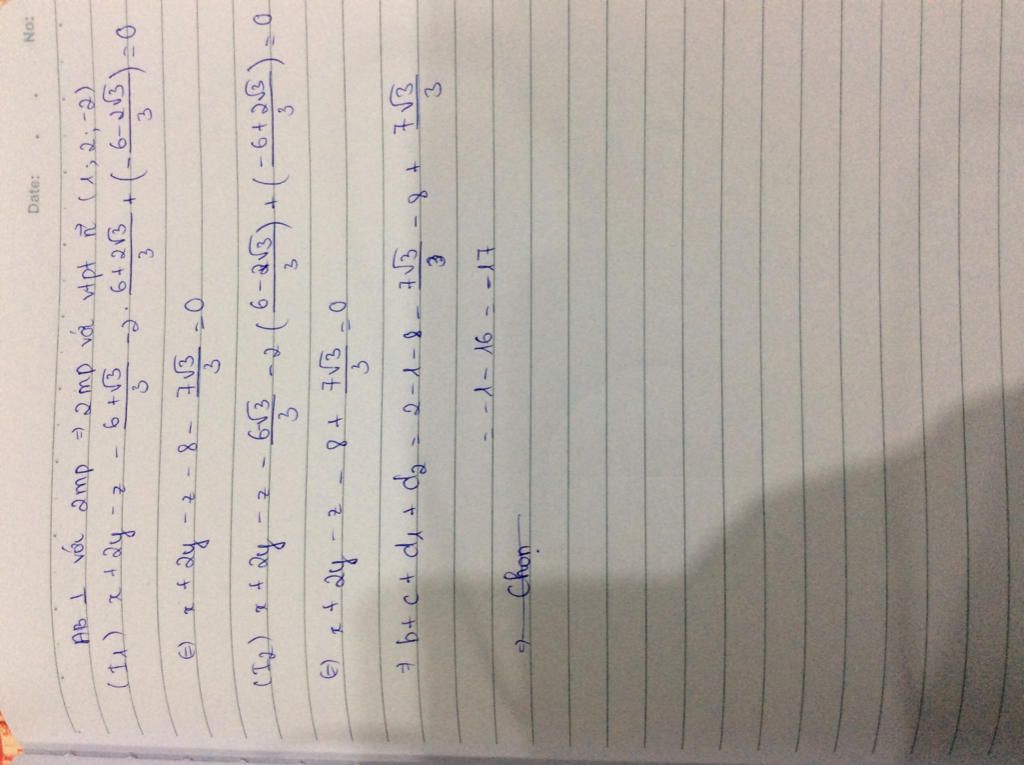 Date: No:
AB ⊥ với 2mp ⇒ 2mp với vtpt n⃗ (1; 2; -2)
(I₁) x + 2y - z - (6+√3)/3 - 2. (6+2√3)/3 + (- (6-2√3)/3) = 0
(=) x + 2y - z - 8 - 7√3/3 = 0
(I₂) x + 2y - z - 6√3/3 - 2 ( (6-2√3)/3 ) + ( (-6+2√3)/3 ) = 0
(=) x + 2y - z - 8 + 7√3/3 = 0
⇒ b + c + d₁ + d₂ = 2 - 1 - 8 - 7√3/3 - 8 + 7√3/3
= -1 - 16 = -17
⇒ Chọn